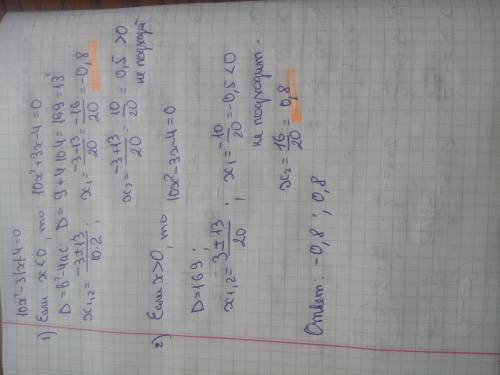 10x²-3|x|-4=0
1) Если x<0, то 10x²+3x-4=0
D=b²-4ac; D=9+4·10·4=169=13²
x₁,₂=(-3±13)/(10·2); x₁=(-3-13)/20=-16/20=-0,8
x₂=(-3+13)/20=10/20=0,5>0
не подходит
2) Если x>0, то 10x²-3x-4=0
D=169;
x₁,₂=(3±13)/20; x₁=-10/20=-0,5<0
не подходит.
x₂=16/20=0,8
Ответ: -0,8; 0,8